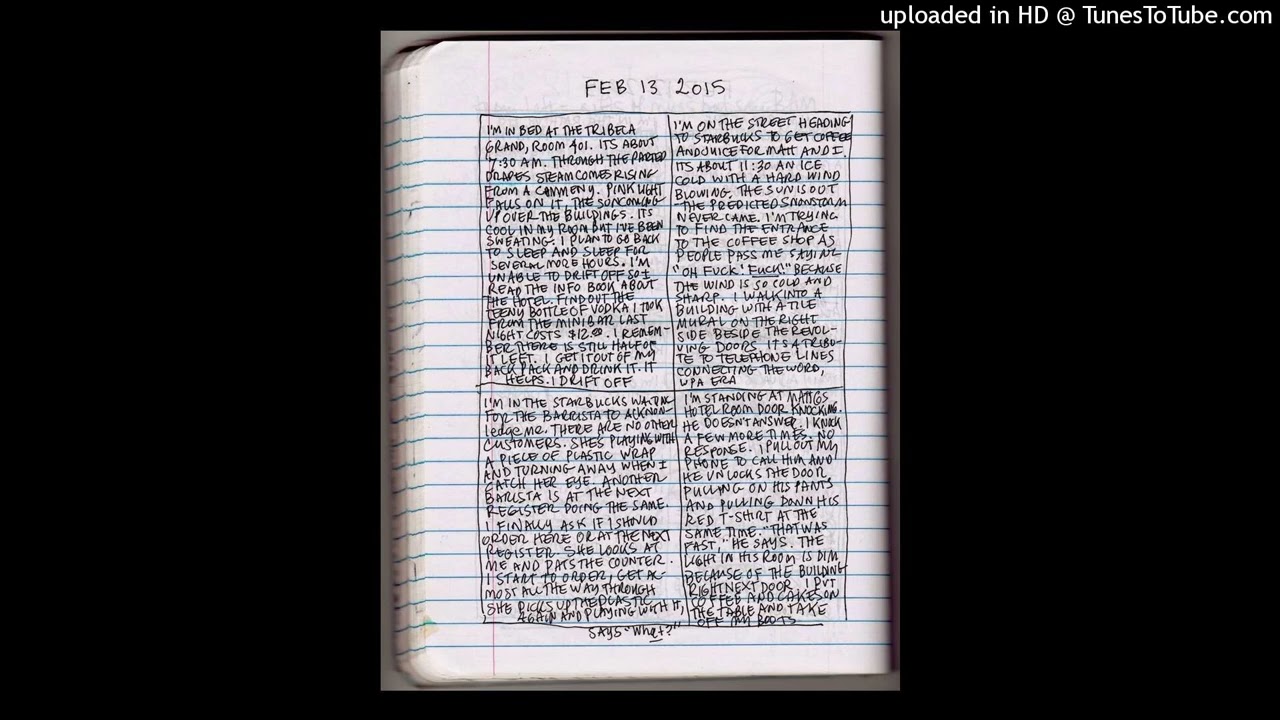 uploaded in HD @ TunesToTube.com
FEB 13 2015
I'M IN BED AT THE TRIBECA
GRAND, ROOM 401. ITS ABOUT
7:30 AM. THROUGH THE PARTED
DRAPES STEAM COMES RISING
FROM A CHIMENY. PINK LIGHT
FALLS ON IT, THE SUN COMING
UP OVER THE BUILDINGS. ITS
COOL IN MY ROOM BUT I'VE BEEN
SWEATING. I PLAN TO GO BACK
TO SLEEP AND SLEEP FOR
SEVERAL MORE HOURS. I'M
UNABLE TO DRIFT OFF SO I
READ THE INFO BOOK ABOUT
THE HOTEL. FIND OUT THE
TEENY BOTTLE OF VODKA I TOOK
FROM THE MINIBAR LAST
NIGHT COSTS $12.00. I REMEM-
BER THERE IS STILL HALF OF
IT LEFT. I GET IT OUT OF MY
BACK PACK AND DRINK IT. IT
HELPS. I DRIFT OFF
I'M ON THE STREET HEADING
TO STARBUCKS TO GET COFFEE
AND JUICE FOR MATT AND I.
ITS ABOUT 11:30 AN ICE
COLD WITH A HARD WIND
BLOWING. THE SUN IS OUT
-THE PREDICTED SNOWSTORM
NEVER CAME. I'M TRYING
TO FIND THE ENTRANCE
TO THE COFFEE SHOP AS
PEOPLE PASS ME SAYING
"OH FUCK! FUCK!" BECAUSE
THE WIND IS SO COLD AND
SHARP. I WALK INTO A
BUILDING WITH A TILE
MURAL ON THE RIGHT
SIDE BESIDE THE REVOL-
VING DOORS. ITS A TRIBU-
TE TO TELEPHONE LINES
CONNECTING THE WORD,
WPA ERA
I'M IN THE STARBUCKS WAITING
FOR THE BARRISTA TO ACKNOW-
ledge ME. THERE ARE NO OTHER
CUSTOMERS. SHES PLAYING WITH
A PIECE OF PLASTIC WRAP
AND TURNING AWAY WHEN I
CATCH HER EYE. ANOTHER
BARISTA IS AT THE NEXT
REGISTER DOING THE SAME.
I FINALLY ASK IF I SHOULD
ORDER HERE OR AT THE NEXT
REGISTER. SHE LOOKS AT
ME AND PATS THE COUNTER.
I START TO ORDER, GET AL-
MOST ALL THE WAY THROUGH
SHE PICKS UP THE PLASTIC
AGAIN AND PLAYING WITH IT,
SAYS "What?"
I'M STANDING AT MATTCOS
HOTEL ROOM DOOR KNOCKING.
HE DOESN'T ANSWER. I KNOCK
A FEW MORE TIMES. NO
RESPONSE. I PULL OUT MY
PHONE TO CALL HIM AND
HE UNLOCKS THE DOOR
PULLING ON HIS PANTS
AND PULLING DOWN HIS
RED T-SHIRT AT THE
SAME TIME. "THAT WAS
FAST," HE SAYS. THE
LIGHT IN HIS ROOM IS DIM
BECAUSE OF THE BUILDING
RIGHT NEXT DOOR. I PUT
COFFEE AND CAKES ON
THE TABLE AND TAKE
OFF MY BOOTS